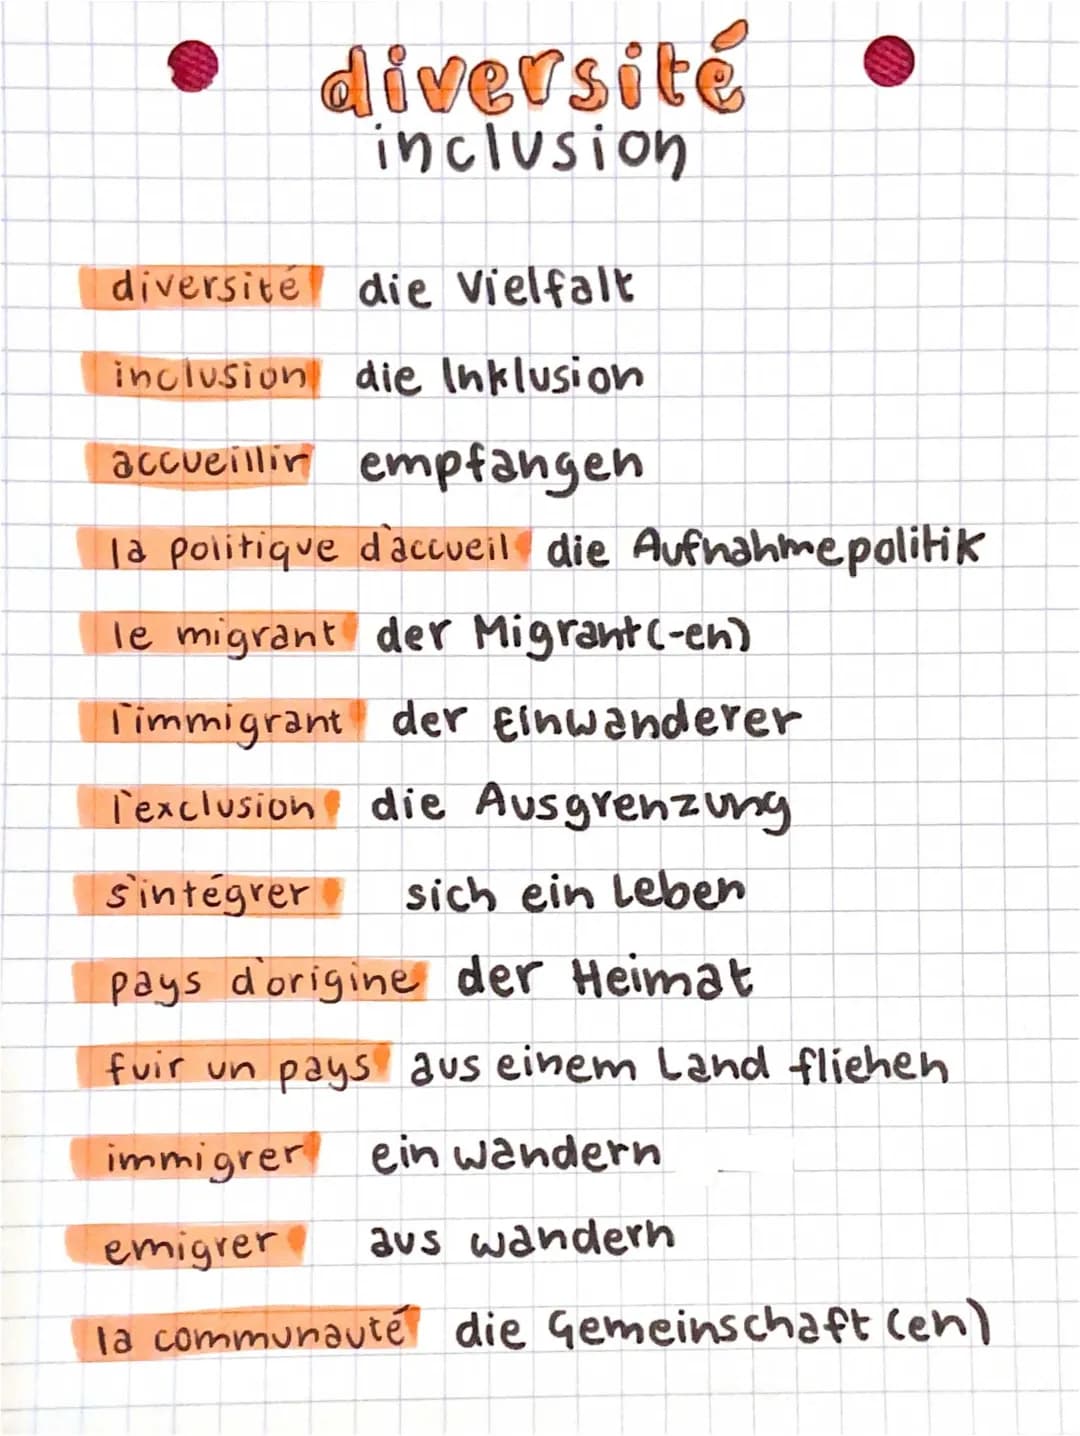 diversité
inclusion
diversité die Vielfalt
inclusion die Inklusion
accueillir empfangen
la politique d'accueil die Aufnahmepolitik
le migrant der Migrant(-en)
l'immigrant der Einwanderer
l'exclusion die Ausgrenzung
s'intégrer sich ein Leben
pays d'origine der Heimat
fuir un pays aus einem Land fliehen
immigrer ein wandern
emigrer aus wandern
la communauté die Gemeinschaft (en)